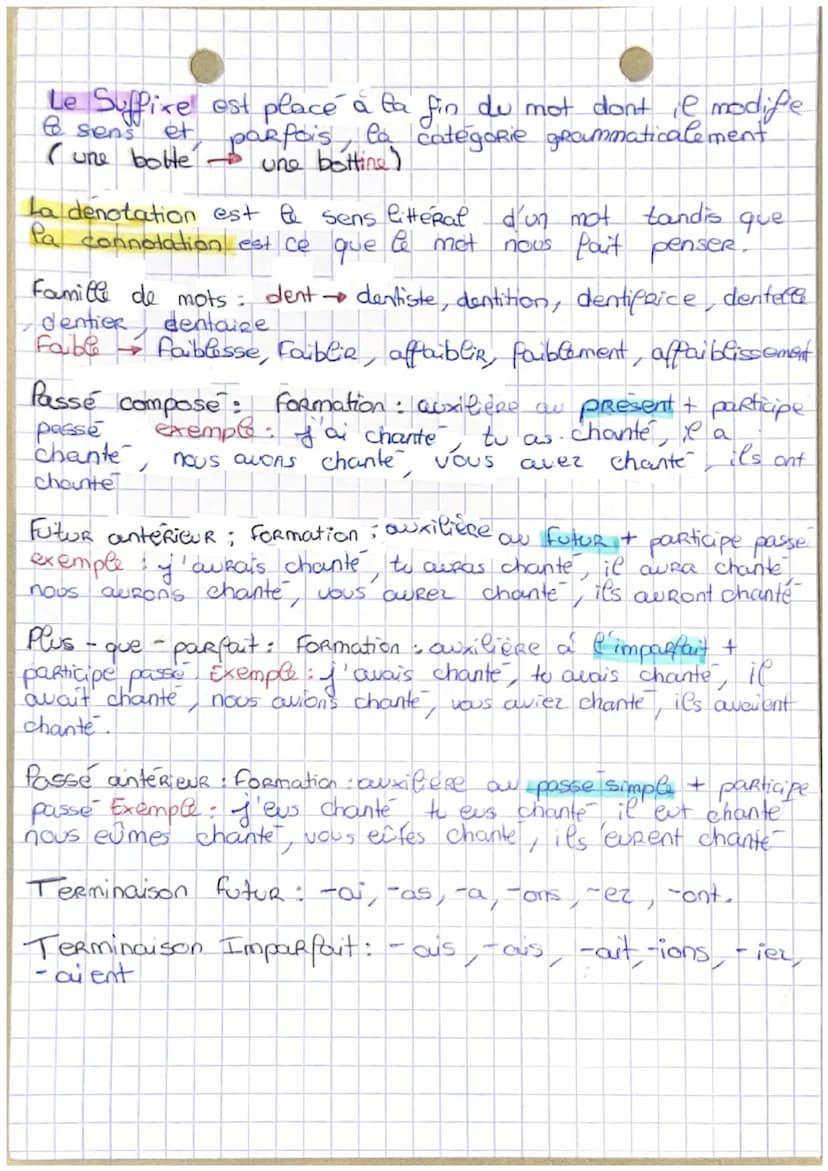 Le Suffixe est placé à la fin du mot dont il modifie
le sens et, parfois, la catégorie grammaticalement
(une botte → une bottine)
La dénotation est le sens littéral d'un mot tandis que
la connotation est ce que le mot nous fait penser.
Famille de mots : dent → dentiste, dentition, dentifrice, dentelle
, dentier, dentaire
Faible → faiblesse, faiblir, affaiblir, faiblement, affaiblissement
Passé composé : Formation : auxilière au présent + participe
passé exemple : j'ai chanté, tu as chanté, il a
chanté, nous avons chanté, vous avez chanté, ils ont
chanté
Futur antérieur ; Formation ; auxilière au futur + participe passé
exemple : j'aurais chanté, tu auras chanté, il aura chanté,
nous aurons chanté, vous aurez chanté, ils auront chanté
Plus-que-parfait : Formation : auxilière à l'imparfait +
participe passé. Exemple : j'avais chanté, tu avais chanté, il
avait chanté, nous avions chanté, vous aviez chanté, ils avaient
chanté.
Passé antérieur : Formation : auxilière au passé simple + participe
passé Exemple : j'eus chanté tu eus chanté il eut chanté
nous eûmes chanté, vous eûtes chanté, ils eurent chanté
Terminaison futur : -ai, -as, -a, -ons, -ez, -ont.
Terminaison Imparfait : -ais, -ais, -ait, -ions, -iez,
-aient